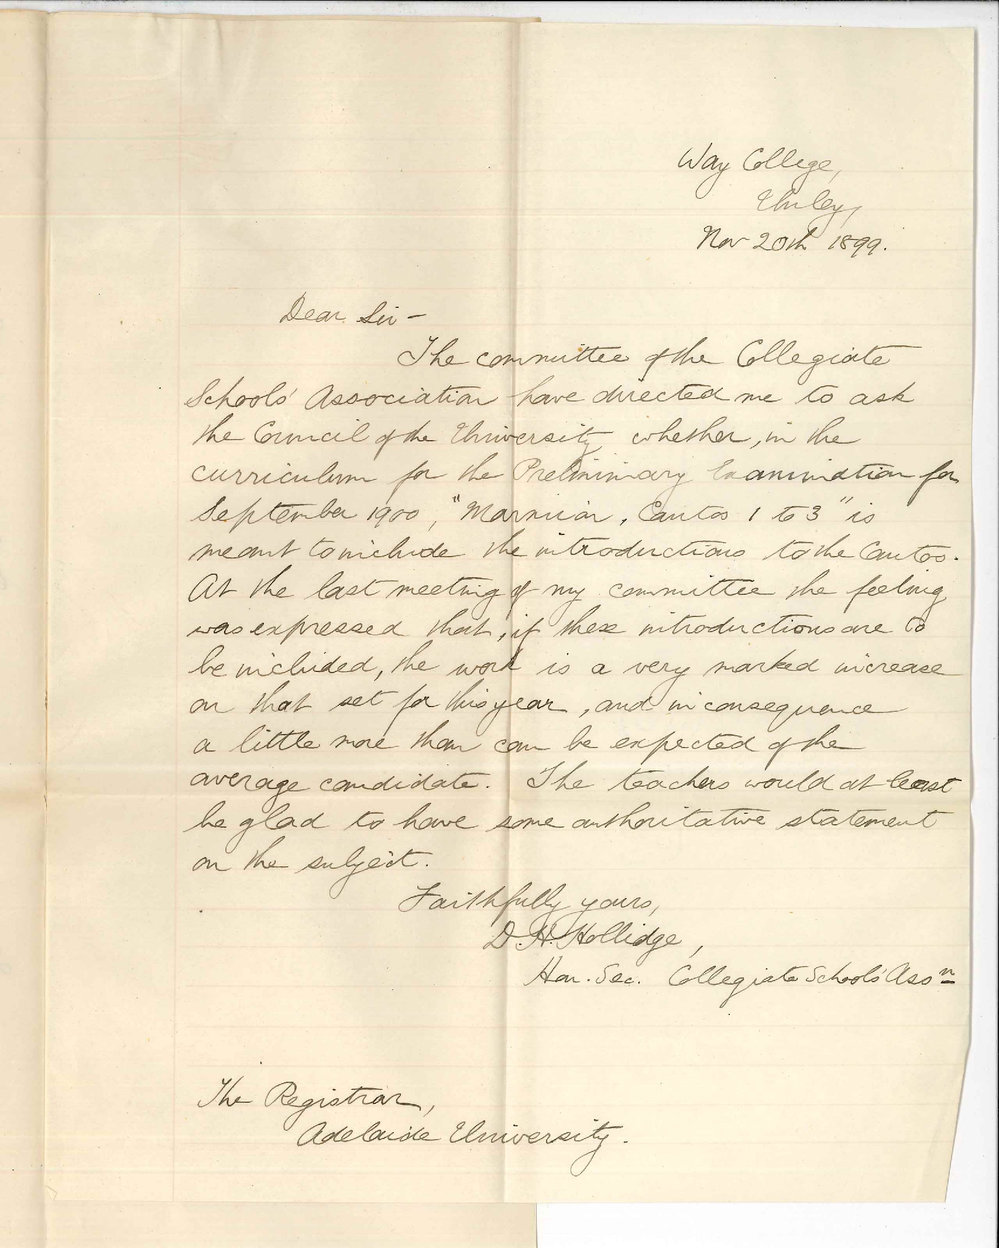 Way College,
Unley,
Nov 20th 1899.
Dear Sir –
The committee of the Collegiate
Schools' Association have directed me to ask
the Council of the University whether, in the
curriculum for the Preliminary Examination for
September 1900, "Marmion, Cantos 1 to 3" is
meant to include the introductions to the Cantos.
At the last meeting of my committee the feeling
was expressed that, if these introductions are to
be included, the work is a very marked increase
on that set for this year, and in consequence
a little more than can be expected of the
average candidate. The teachers would at least
be glad to have some authoritative statement
on the subject.
Faithfully yours,
D. H. Hollidge,
Hon. Sec. Collegiate Schools' Assn
The Registrar,
Adelaide University.